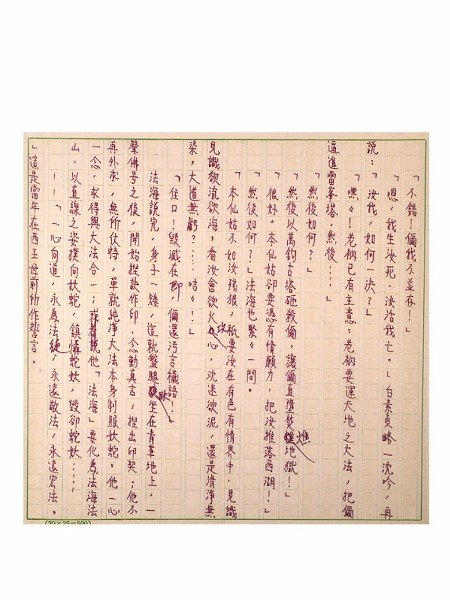 「不錯！偏我不並存！」
「恩，我生汝死，汝活我亡。」白素貞略一沈吟，再
說：「汝我，如何一決？」
「嘿々！老衲已有主意：老衲要運天地之大法，把偏
逼進雷峯塔，然後‥‥」
「然後如何？」
「然後以萬鈞古塔砸殺偏，讓偏直墮焚燋地獄！」
「很好。本仙姑卻要憑有情願力，把汝推落西湖！」
「然後如何？」法海也緊々一問。
「本仙姑不如汝殘狠，祇要汝在有色有情界中，見識
見識欲流欲海，看汝會欲火攻心，沈迷欲泥，還是清淨無
染，大道無虧？‥‥嘻々！」
「住口！毀滅在即，偏還污言穢語！」
法海說完，身子一矮，這就盤腿趺坐在青草地上，一
聲佛号之後，開始捏訣作印，念動真言，捏出印契；他不
再外求，無所仗恃，單就純淨大法本身剋服妖蛇。他一心
一念，求得與大法合一；或者說他「法海」要化為法海法
山，以直線之姿撲向妖蛇，鎮懾妖蛇，毀卻蛇妖‥‥
——「一心向道，永為法徒，永遠敬法，永遠宏法。
」這是當年在西王母前所作誓言。
(20×25=500)